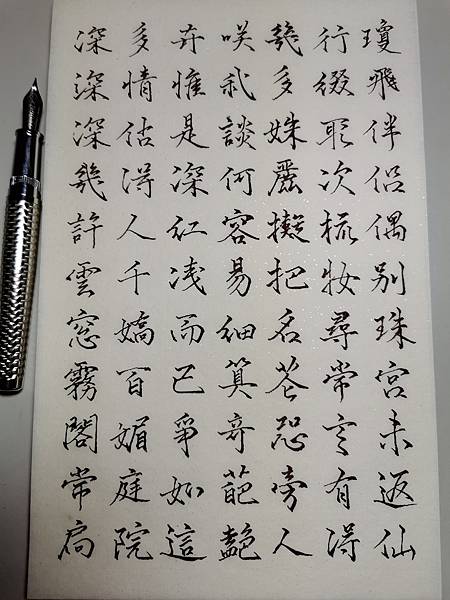 瓊飛伴侶偶別珠宮未返仙
行綴取次梳妝尋常言有得
幾多姝麗擬把名花恐旁人
咲我談何容易細算奇葩艷
卉惟是深紅淺而已爭如這
多情佔得人千嬌百媚庭院
深深深幾許雲窗霧閣常扃